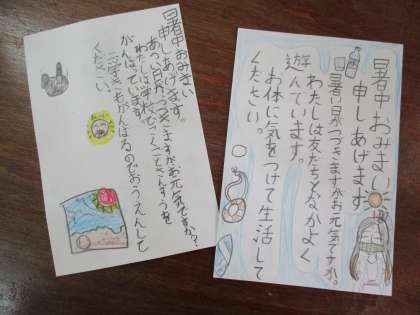 暑中おみまい
申しあげます。
あつい日がつづきますがお元気ですか?
わたしは
がんばっています。
二学きもがんばるのでおうえんして
ください。
暑中おみまい
申しあげます。
暑い日がつづきますがお元気ですか。
わたしは友だちとなかよく
遊んでいます。
お体に気をつけて生活して
ください。